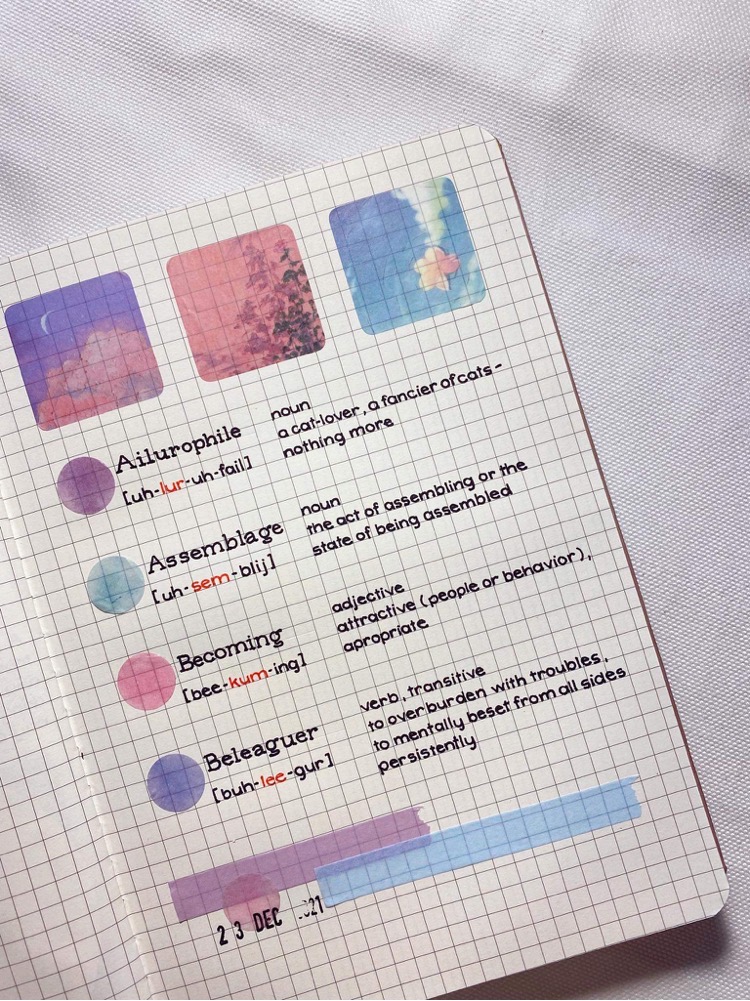 Ailurophile
[uh-lur-uh-fail]
noun
a cat-lover, a fancier of cats -
nothing more
Assemblage
[uh-sem-blij]
noun
the act of assembling or the
state of being assembled
Becoming
[bee-kum-ing]
adjective
attractive (people or behavior),
apropriate
Beleaguer
[buh-lee-gur]
verb, transitive
to overburden with troubles,
to mentally beset from all sides
persistently
23 DEC 21